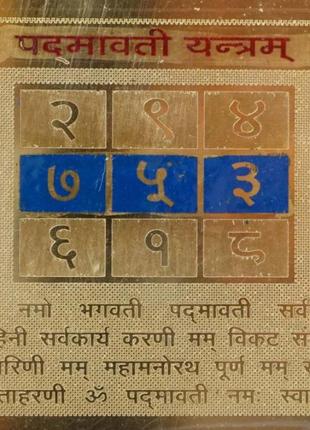 पद्मावती यन्त्रम्
२ ९ ४
७ ५ ३
६ १ ८
नमो भगवती पद्मावती सर्व
सर्वकार्य करणी मम् विकट
मम् महामनोरथ पूर्ण मम्
ॐ पद्मावती नमः